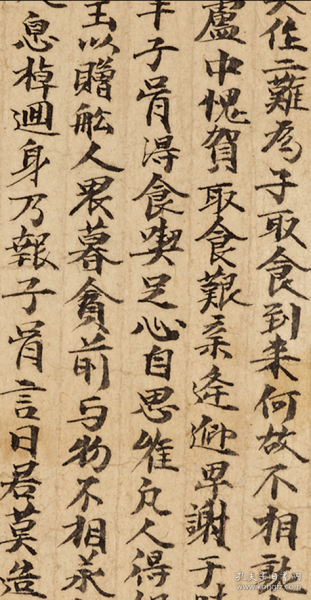 住二難為子取食到来何故不相
蘆中愧賀取食艱辛逢迎卑謝于
子胥得食喫足心自思惟凡人得
玉以贈舩人畏暮貪前与物不相承
息棹迴身乃報子胥言曰君莫造
孔夫子旧书网